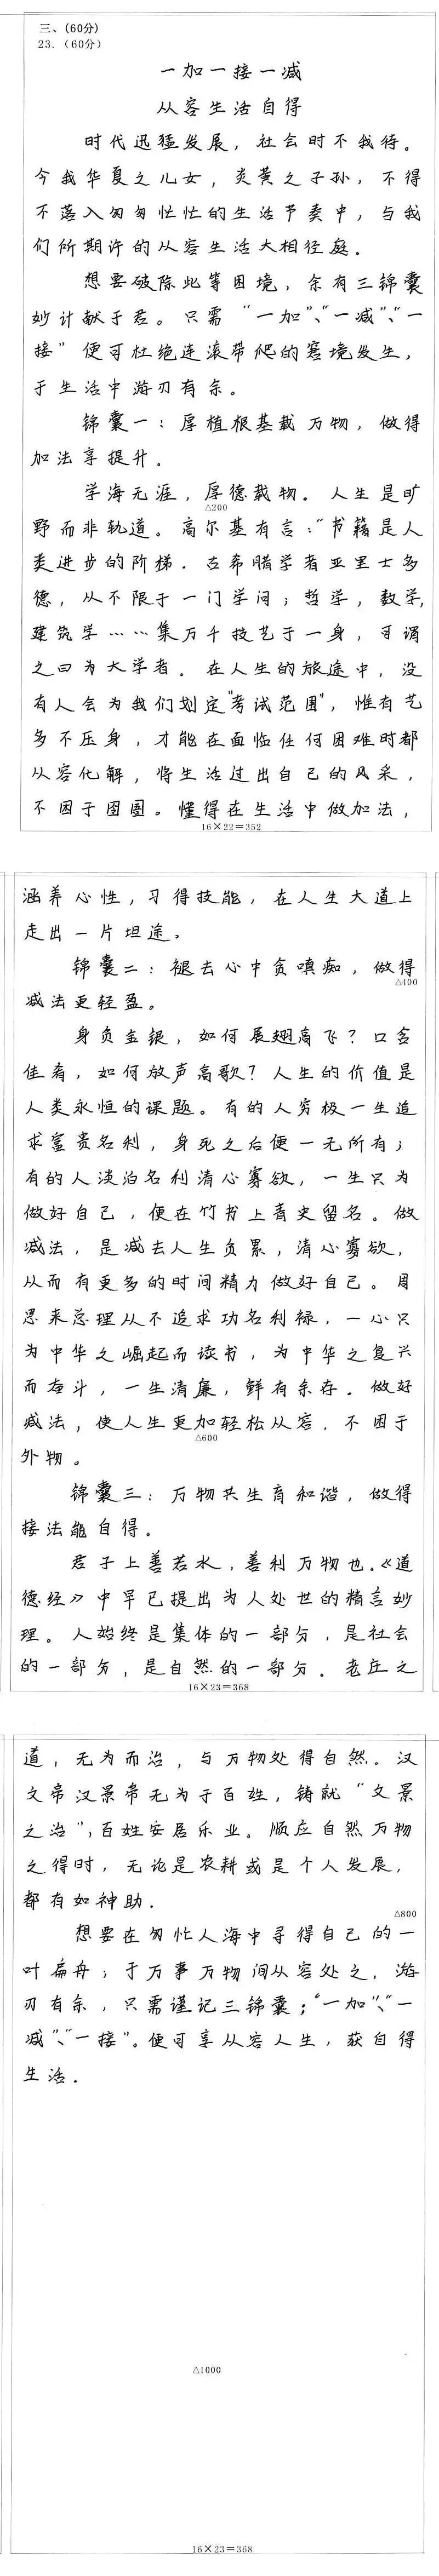 三、(60分)
23.（60分）
一加一接一减
从容生活自得
时代迅猛发展，社会时不我待。
今我华夏之儿女，炎黄之子孙，不得
不落入匆匆忙忙的生活节奏中，与我
们所期许的从容生活大相径庭.
想要破除此等困境，余有三锦囊
妙计献于君。只需“一加”、“一减”、“一
接”便可杜绝连滚带爬的窘境发生，
于生活中游刃有余。
锦囊一：厚植根基载万物，做得
加法享提升.
学海无涯，厚德载物.人生是旷
△200
野而非轨道。高尔基有言：“书籍是人
类进步的阶梯.古希腊学者亚里士多
德，从不限于一门学问；哲学，数学，
建筑学……集万千技艺于一身，可谓
之曰为大学者.在人生的旅途中，没
有人会为我们划定“考试范围”，惟有艺
多不压身，才能在面临任何困难时都
从容化解，将生活过出自己的风采，
不困于囹圄。懂得在生活中做加法，
16×22=352
涵养心性，习得技能，在人生大道上
走出一片坦途。
锦囊二：褪去心中贪嗔痴，做得
△400
减法更轻盈。
身负金银，如何展翅高飞？口含
佳肴，如何放声高歌？人生的价值是
人类永恒的课题。有的人穷极一生追
求富贵名利，身死之后便一无所有；
有的人淡泊名利清心寡欲，一生只为
做好自己，便在竹书上青史留名。做
减法，是减去人生负累，清心寡欲，
从而有更多的时间精力做好自己。周
恩来总理从不追求功名利禄，一心只
为中华之崛起而读书，为中华之复兴
而奋斗，一生清廉，鲜有余存.做好
减法，使人生更加轻松从容，不困于
△600
外物。
锦囊三：万物共生育和谐，做得
接法能自得.
君子上善若水，善利万物也.《道
德经》中早已提出为人处世的精言妙
理。人始终是集体的一部分，是社会
的一部分，是自然的一部分.老庄之
16×23=368
道，无为而治，与万物处得自然。汉
文帝汉景帝无为于百姓，铸就“文景
之治”，百姓安居乐业。顺应自然万物
之得时，无论是农耕或是个人发展，
都有如神助.
△800
想要在匆忙人海中寻得自己的一
叶扁舟；于万事万物间从容处之，游
刃有余，只需谨记三锦囊；“一加”、“一
减”、“一接”。便可享从容人生，获自得
生活.
△1000
16×23=368